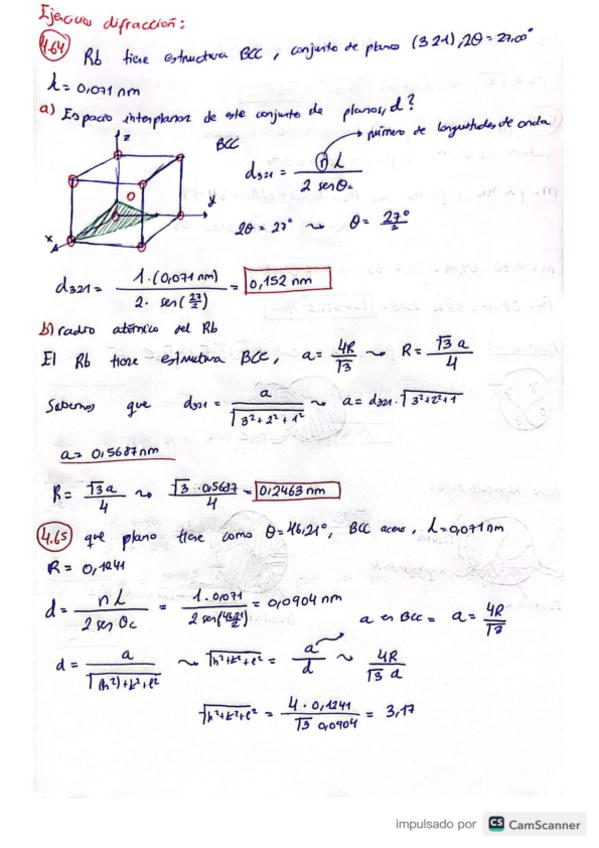 Ejercicios difracción:
4.64 Rb tiene estructura BCC, conjunto de planos (321), 2θ = 27,00°
λ = 0,071 nm
a) Espacio interplanar de este conjunto de planos, d?
z
BCC
número de longuitudes de onda
d321 = n λ / 2 sen θc
O
y
x
2θ = 27° ⇝ θ = 27°/2
d321 = 1·(0,071 nm) / 2· sen(27/2) = 0,152 nm
b) radio atómico del Rb
El Rb tiene estructura BCC, a = 4R/√3 ⇝ R = √3 a/4
Sabemos que d321 = a/√3²+2²+1² ⇝ a = d321 · √3²+2²+1
a = 0,5687 nm
R = √3 a/4 ⇝ √3 · 0,5687/4 = 0,2463 nm
4.65 que plano tiene como θ = 46,21°, BCC acero, λ = 0,071 nm
R = 0,1241
d = n λ / 2 sen θc = 1 · 0,071 / 2 sen(46,21/2) = 0,0904 nm
a en BCC = a = 4R/√3
d = a/√(h²)+k²+l² ⇝ √h²+k²+l² = a/d ⇝ 4R/√3 a
√h²+k²+l² = 4 · 0,1241 / √3 0,0904 = 3,17
impulsado por CS CamScanner